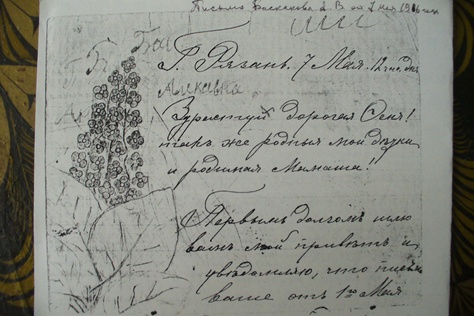 Письмо Баскакова А. В. от 7 мая 1916 года
Г. Рязань. 7 Мая. 12 час. дня
Здравствуй дорогая Сеня!
также родныя мои детки
и родимая Мамаша!
Первымъ долгомъ шлю
вамъ мой приветъ и
уведомляю, что письмо
ваше отъ 1го Мая